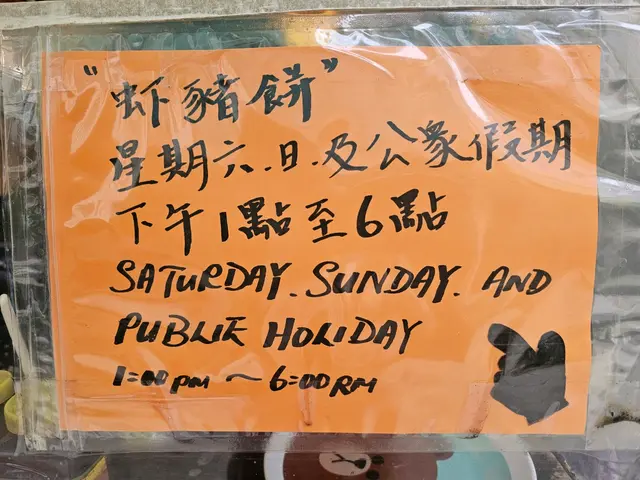 "虾豬餅"
星期六.日.及公衆假期
下午1點至6點
SATURDAY. SUNDAY. AND
PUBLIE HOLIDAY
1:00PM ~ 6:00PM